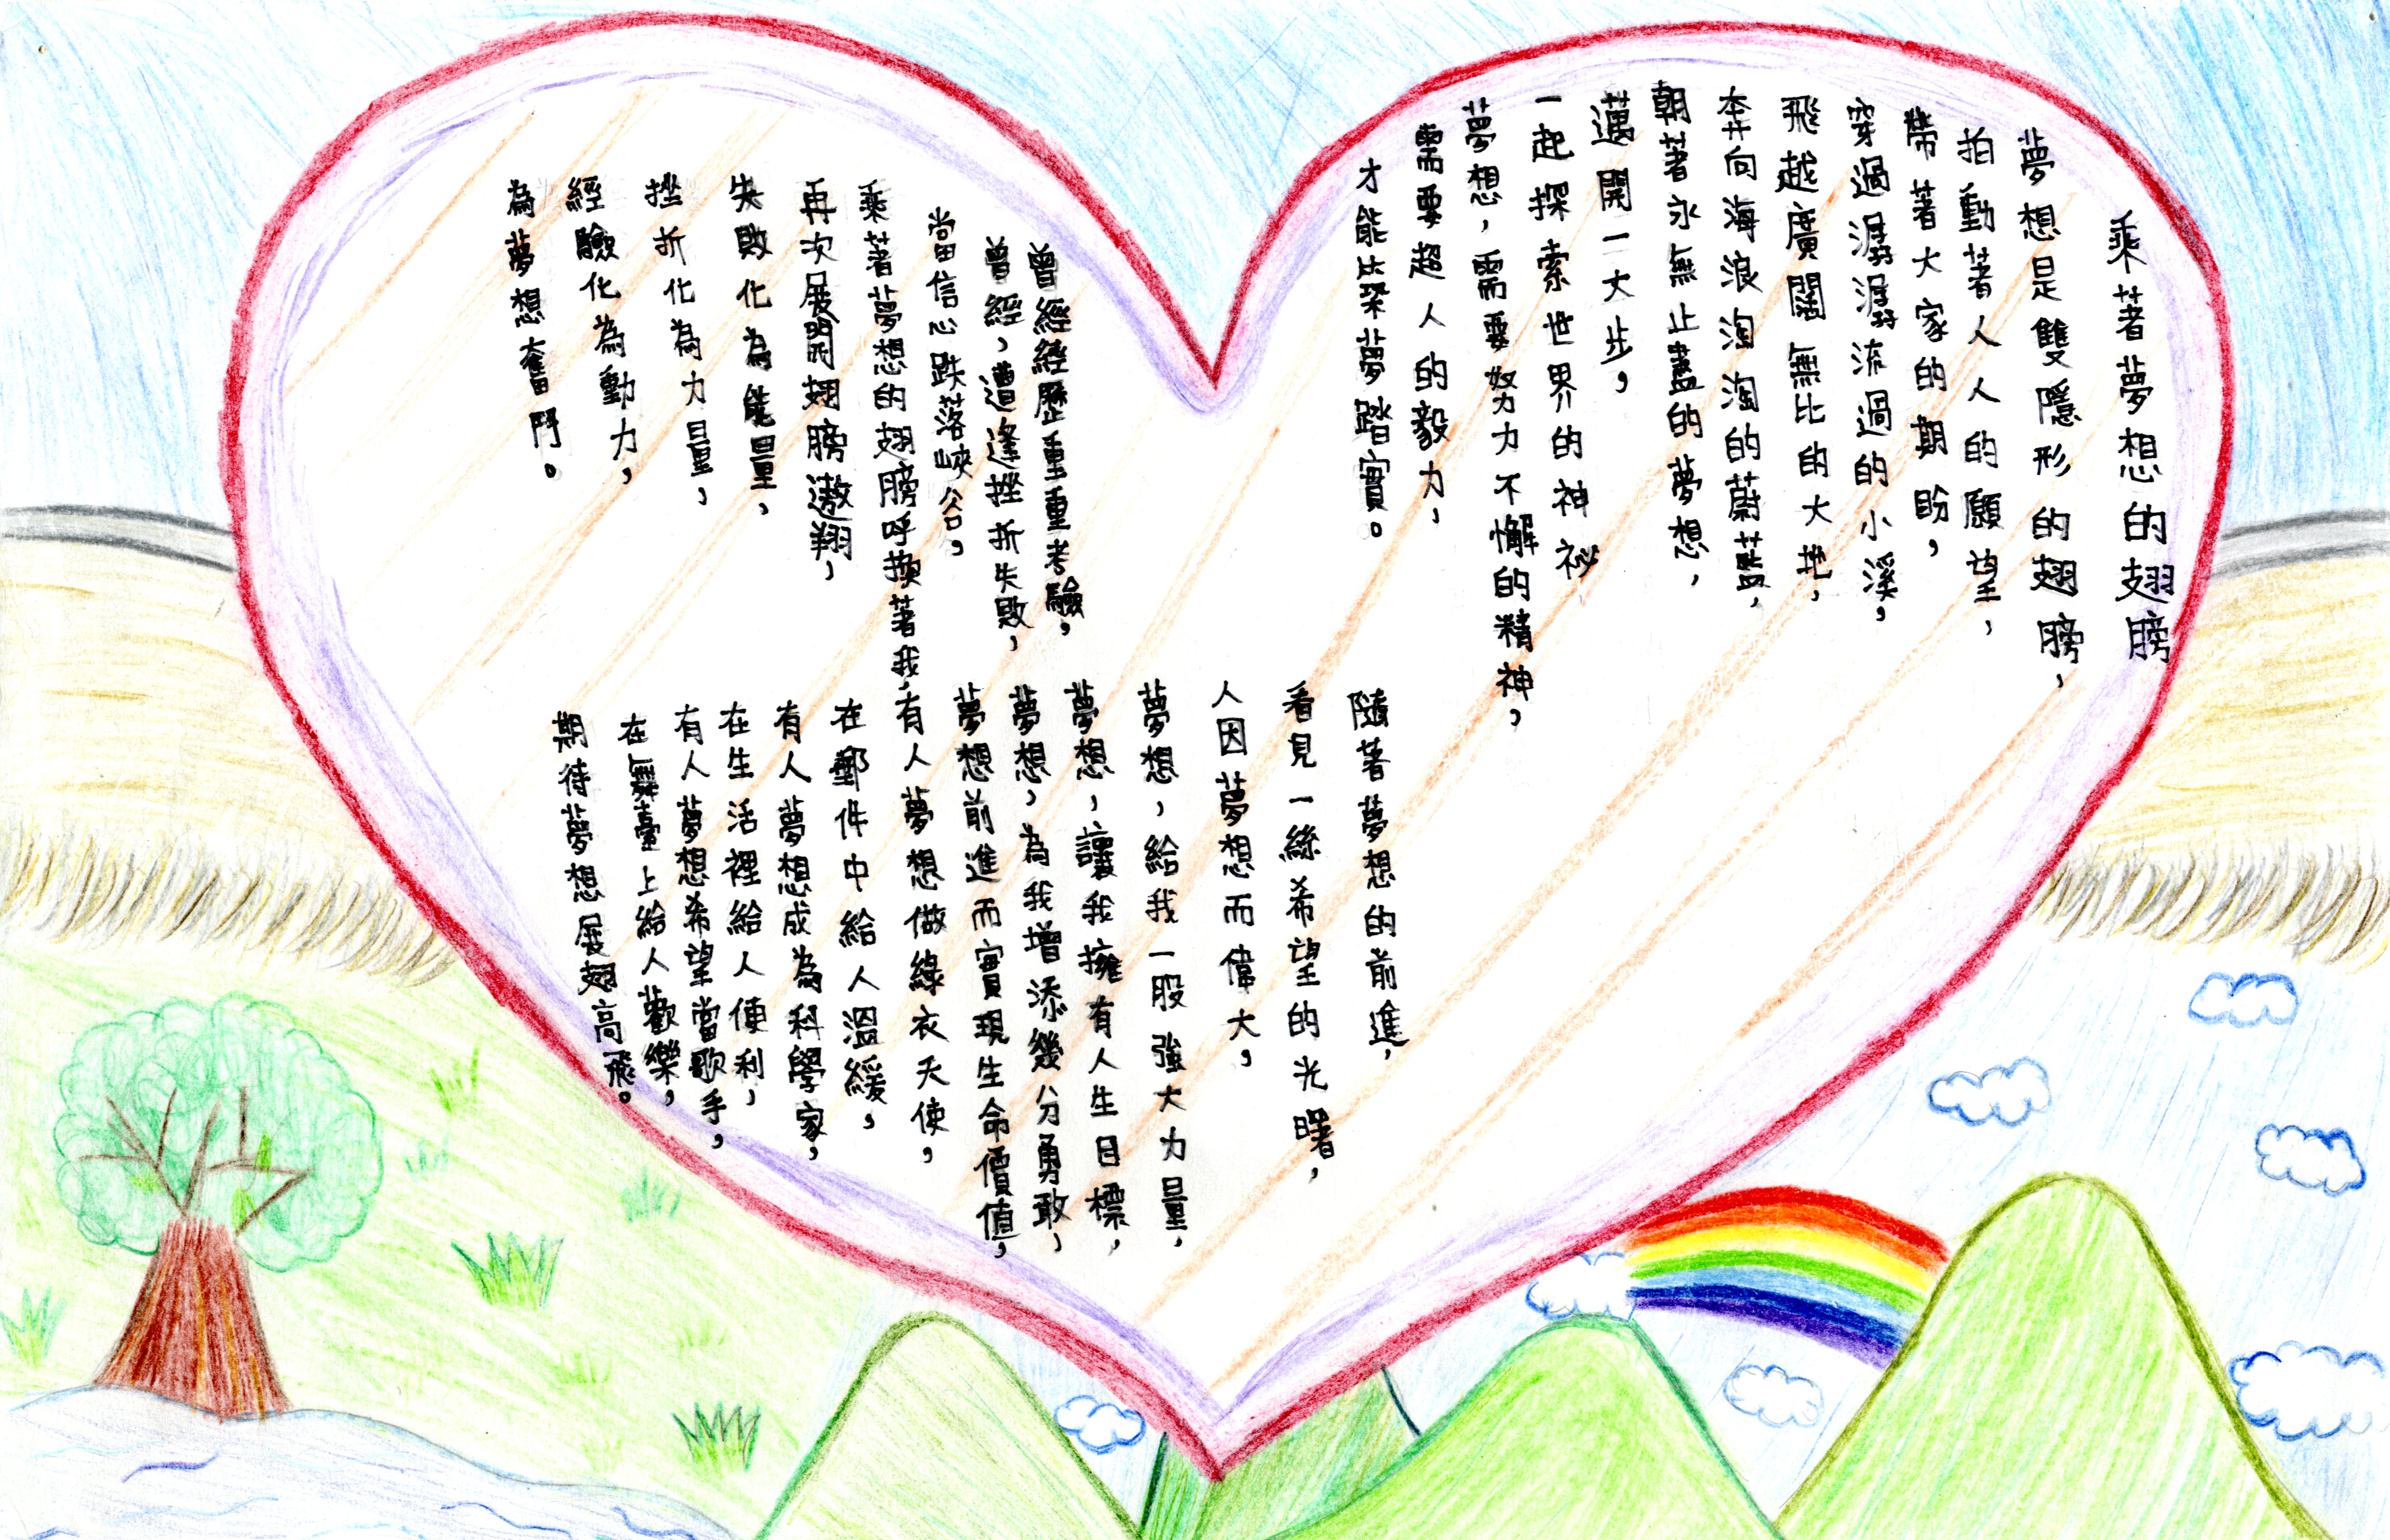 乘著夢想的翅膀
夢想是雙隱形的翅膀，
拍動著人人的願望，
帶著大家的期盼，
穿過潺潺流過的小溪，
飛越廣闊無比的大地，
奔向海浪淘淘的蔚藍，
朝著永無止盡的夢想，
邁開一大步，
一起探索世界的神祕
夢想，需要努力不懈的精神，
需要超人的毅力，
才能比築夢踏實。
曾經經歷重重考驗，
曾經，遭逢挫折失敗，
當信心跌落峽谷，
乘著夢想的翅膀呼換著我，
再次展開翅膀遨翔，
失敗化為能量，
挫折化為力量，
經驗化為動力，
為夢想奮鬥。
隨著夢想的前進，
看見一絲希望的光曙，
人因夢想而偉大，
夢想，給我一股強大力量，
夢想，讓我擁有人生目標，
夢想，為我增添幾分勇敢，
夢想前進而實現生命價值，
有人夢想做綠衣天使，
在郵件中給人溫緩，
有人夢想成為科學家，
在生活裡給人便利，
有人夢想希望當歌手，
在舞臺上給人歡樂，
期待夢想展翅高飛。